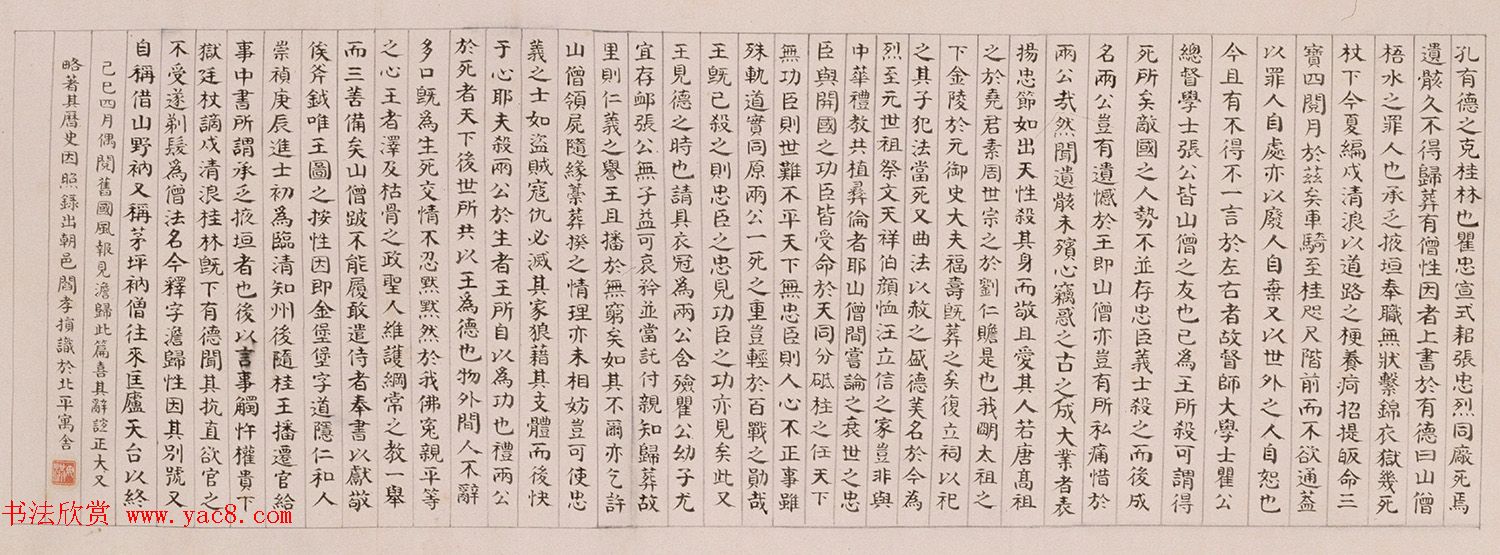 孔有德之克桂林也瞿忠宣式耜張忠烈同厰死焉
遺骸久不得歸葬有僧性因者上書於有德曰山僧
梧水之罪人也承乏掖垣奉職無狀繫錦衣獄幾死
杖下今夏編戍清浪以道路之梗養疴招提皈命三
寶四閱月於茲矣車騎至桂咫尺階前而不欲通蓋
以罪人自處亦以廢人自棄又以世外之人自恕也
今且有不得不一言於左右者故督師大學士瞿公
總督學士張公皆山僧之友也已為王所殺可謂得
死所矣敵國之人勢不並存忠臣義士殺之而後成
名兩公豈有遺憾於王即山僧亦豈有所私痛惜於
兩公哉然聞遺骸未殯心竊惑之古之成大業者表
揚忠節如出天性殺其身而敬且愛其人若唐高祖
之於堯君素周世宗之於劉仁贍是也我明太祖之
下金陵於元御史大夫福壽既葬之矣復立祠以祀
之其子犯法當死又曲法以赦之盛德美名於今為
烈至元世祖祭文天祥伯顏恤汪立信之家豈非與
中華禮教共植彝倫者耶山僧間嘗論之衰世之忠
臣與開國之功臣皆受命於天同分砥柱之任天下
無功臣則世難不平天下無忠臣則人心不正事雖
殊軌道實同原兩公一死之重豈輕於百戰之勛哉
王既已殺之則忠臣之忠見功臣之功亦見矣此又
王見德之時也請具衣冠為兩公含殮瞿公幼子尤
宜存邺張公無子益可哀矜並當託付親知歸葬故
里則仁義之譽王且播於無窮矣如其不爾亦乞許
山僧領屍隨緣藁葬揆之情理亦未相妨豈可使忠
義之士如盜賊寇仇必滅其家狼藉其支體而後快
于心耶夫殺兩公於生者王所自以為功也禮兩公
於死者天下後世所共以王為德也物外閒人不辭
多口既為生死交情不忍默默然於我佛冤親平等
之心王者澤及枯骨之政聖人維護綱常之教一舉
而三善備矣山僧跛不能履敢遣侍者奉書以獻敬
俟斧鉞唯王圖之按性因即金堡堡字道隱仁和人
崇禎庚辰進士初為臨清知州後隨桂王播遷官給
事中書所謂承乏掖垣者也後以言事觸忤權貴下
獄廷杖謫戍清浪桂林既下有德聞其抗直欲官之
不受遂剃髮為僧法名今釋字澹歸性因其別號又
自稱借山野衲又稱茅坪衲僧往來匡廬天台以終
己巳四月偶閱舊國風報見澹歸此篇喜其辭誼正大又
略著其曆史因照錄出朝邑閻孝摃識於北平寓舍
书法欣赏 www.yac8.com